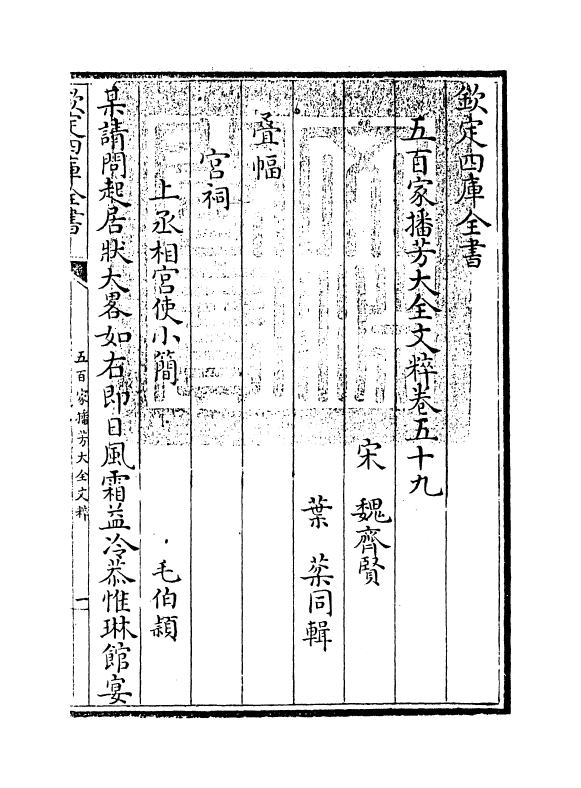 欽定四庫全書
五百家播芳大全文粹卷五十九
宋　魏齊賢
葉　棻同輯
疊幅
宮祠
上丞相宮使小簡　毛伯頴
某請問起居狀大畧如右即日風霜益冷恭惟琳館宴
欽定四庫全書　五百家播芳大全文粹　一